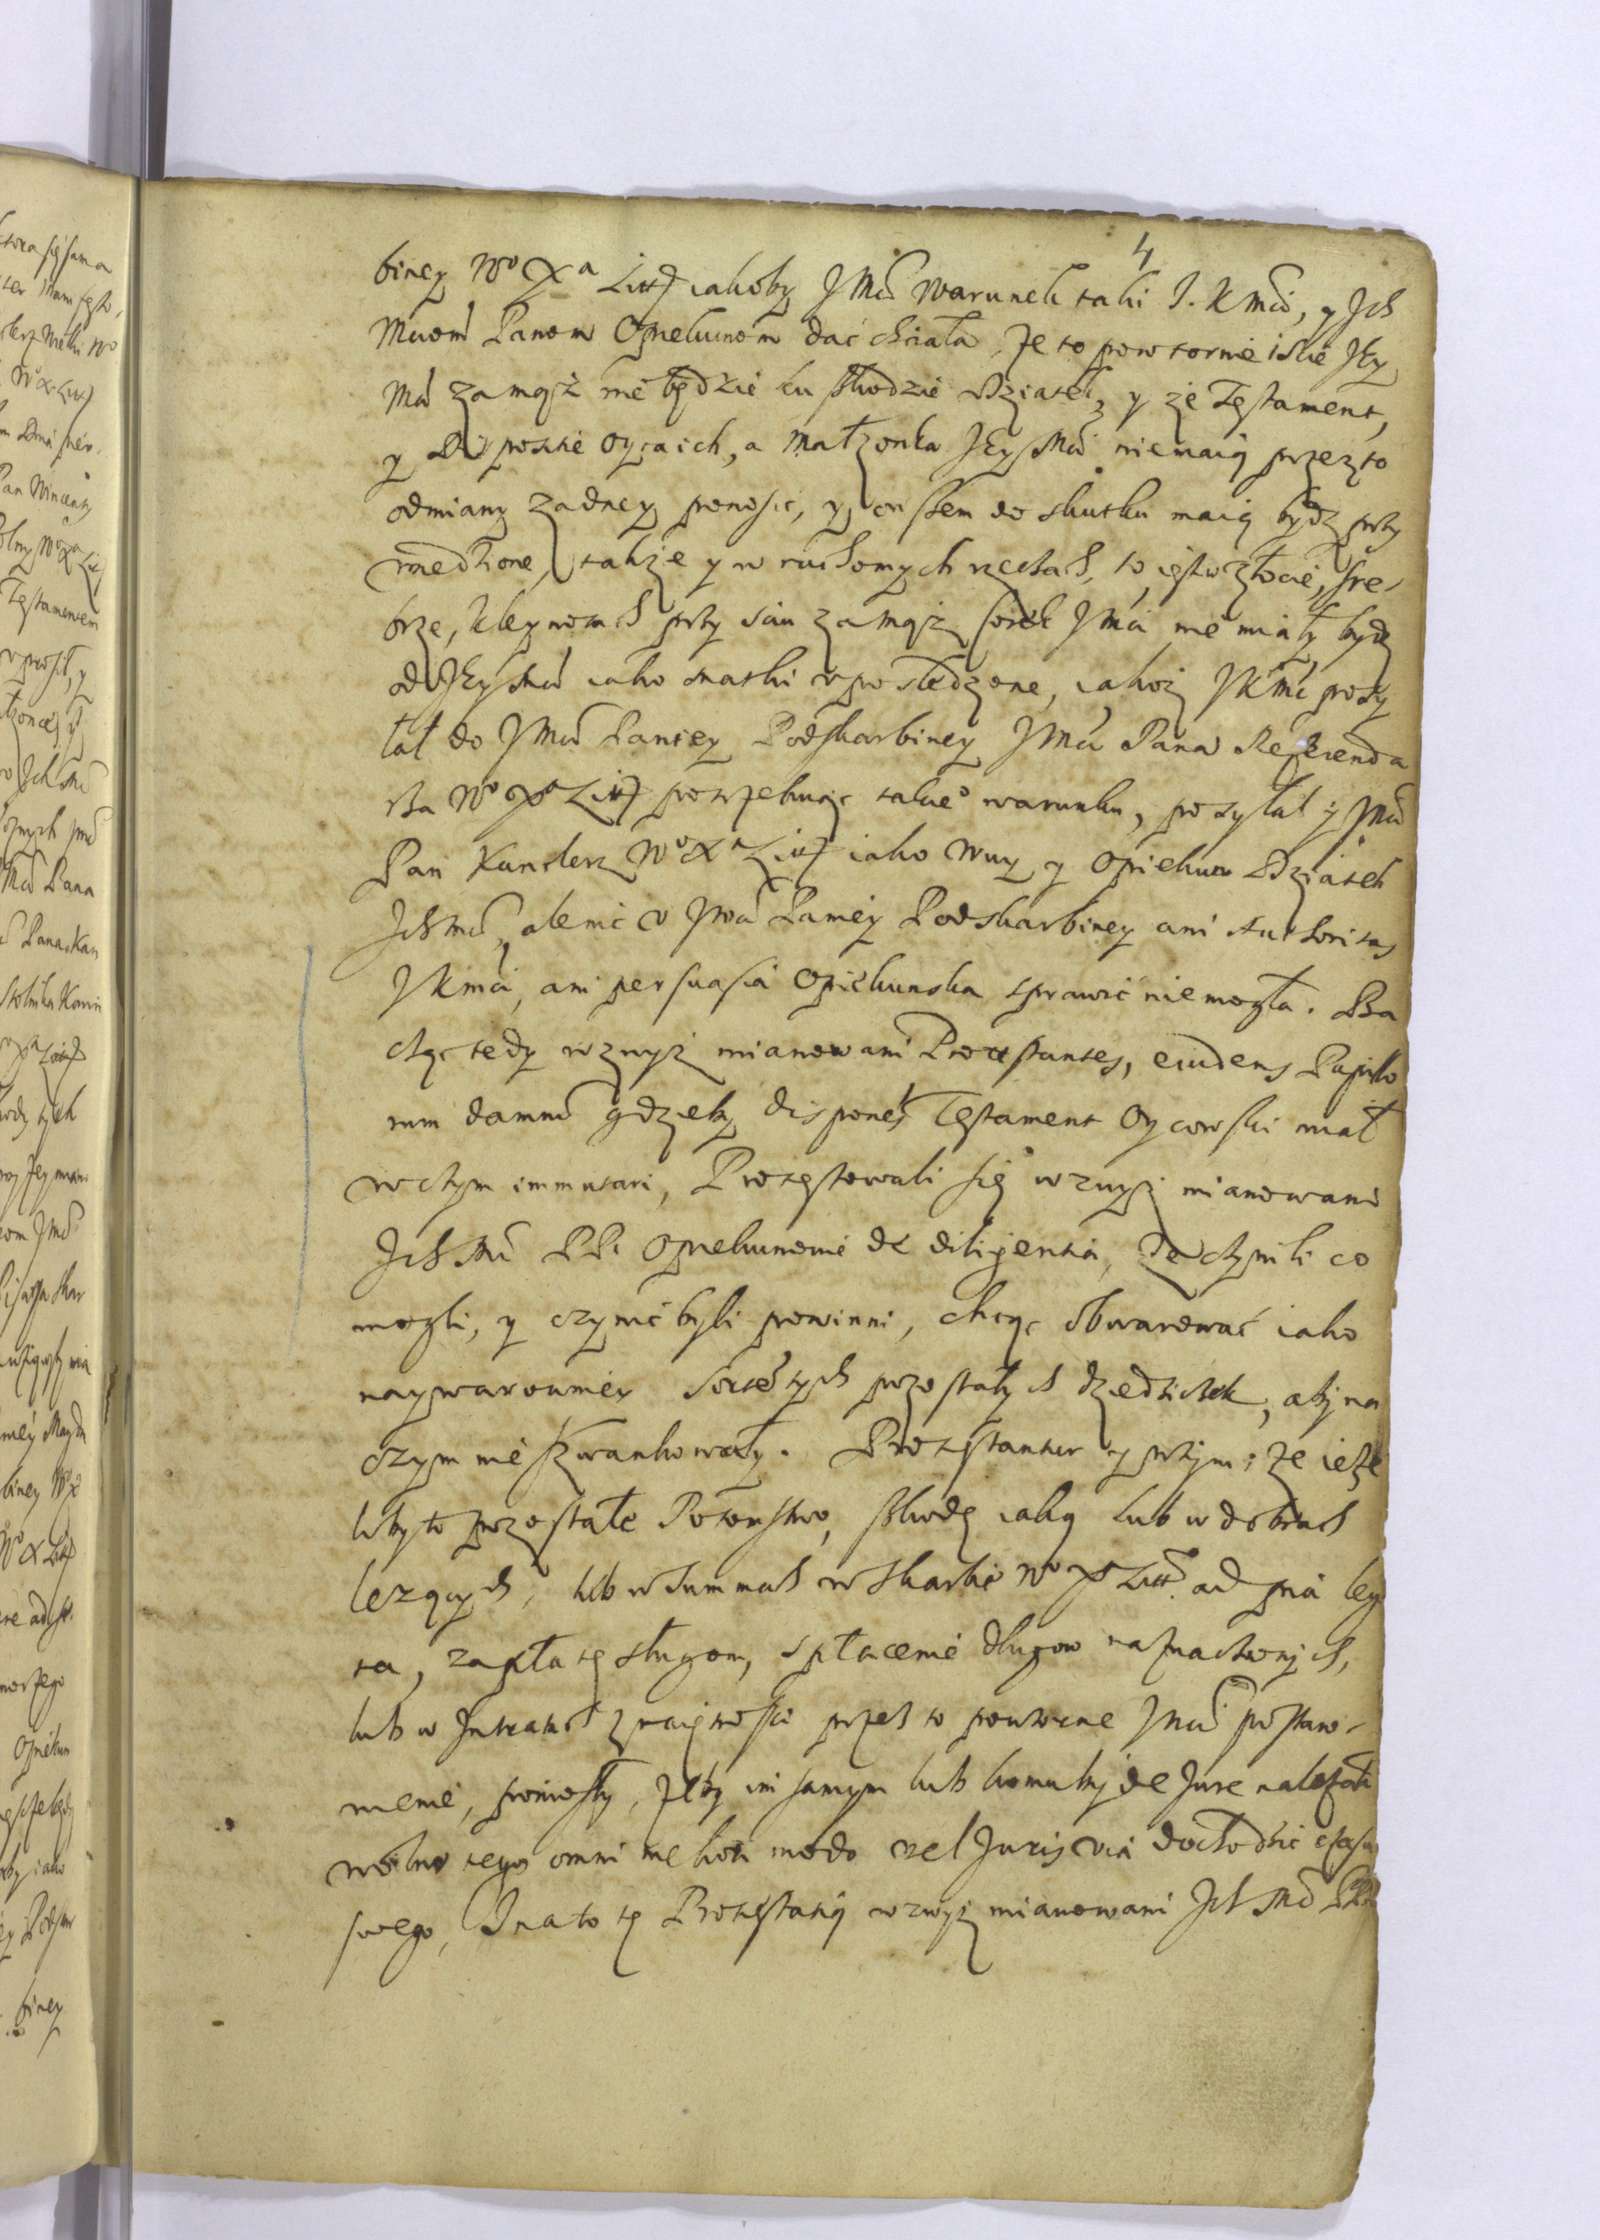 4
biney Wo Xa Litt iakoby J Mć Warunek taki J. K Mći, y Ich
Mciom Panom Opiekunom dać chciała, że to powtorne iście Jey
Mć zamąż nie będzie ku szkodzie Dziatek, y że Testament,
y Dispositie oyca ich, a małżonka Jey Mći nie maią przez to
odmiany żadney ponosic, y owszem do skutku maią bydz przy
wiedzione, także y w ruchomych rzeczach, to iest w złocie, sre-
brze, kleynotach przy isciu zamąż sobie J Mći nie miały bydz
od Jey Mći iako matki uposledzone, iakoż J K Mć posy
łał do J Mći Paniey Podskarbiney J Mći Pana Referenda
rza Wo Xa Litt potrzebuiąc takieo warunku, posyłał y J Mć
Pan Kanclerz Wo Xa Litt iako Wuy y Opiekun Dziatek
Ich Mć, ale nic u J Mći Paniey Podskarbiney ani Authoritas
J K Mći, ani persuasia Opiekunska sprawić nie mogła. Ba
cząc tedy wzwyż mianowani Protestantes, euidens Pupillo
rum damnū gdzieby disponēs Testament Oycowski miał
w czym immutari, Protestowali się wzwyż mianowani
Ich Mć PP. Opiekunowie de diligentia, że czynili co
mogli, y czynić byli powinni, chcąc obwarować iako
naywarowniey sierot tych pozostałych dziedziczek, aby na
czym nie szwankowały. Protestantur y przytym, że ieże
liby to pozostałe Potomstwo, szkodę iaką lub w dobrach
leżących, lub w summach w skarbie Wo Xa Litt ad pia lega
ta, zapłatę sługom, spłacenie długow naznaczonych,
lub w Intratach z maiętności przez to powtorne J Mći postano-
wienie, poniosły, żeby im samym lub komu by de Jure należało
wolno tego omni meliori modo vel Juris via dochodzić czasu
swego, J na to tę Protestatią wzwyż mianowani Ich Mć PP.